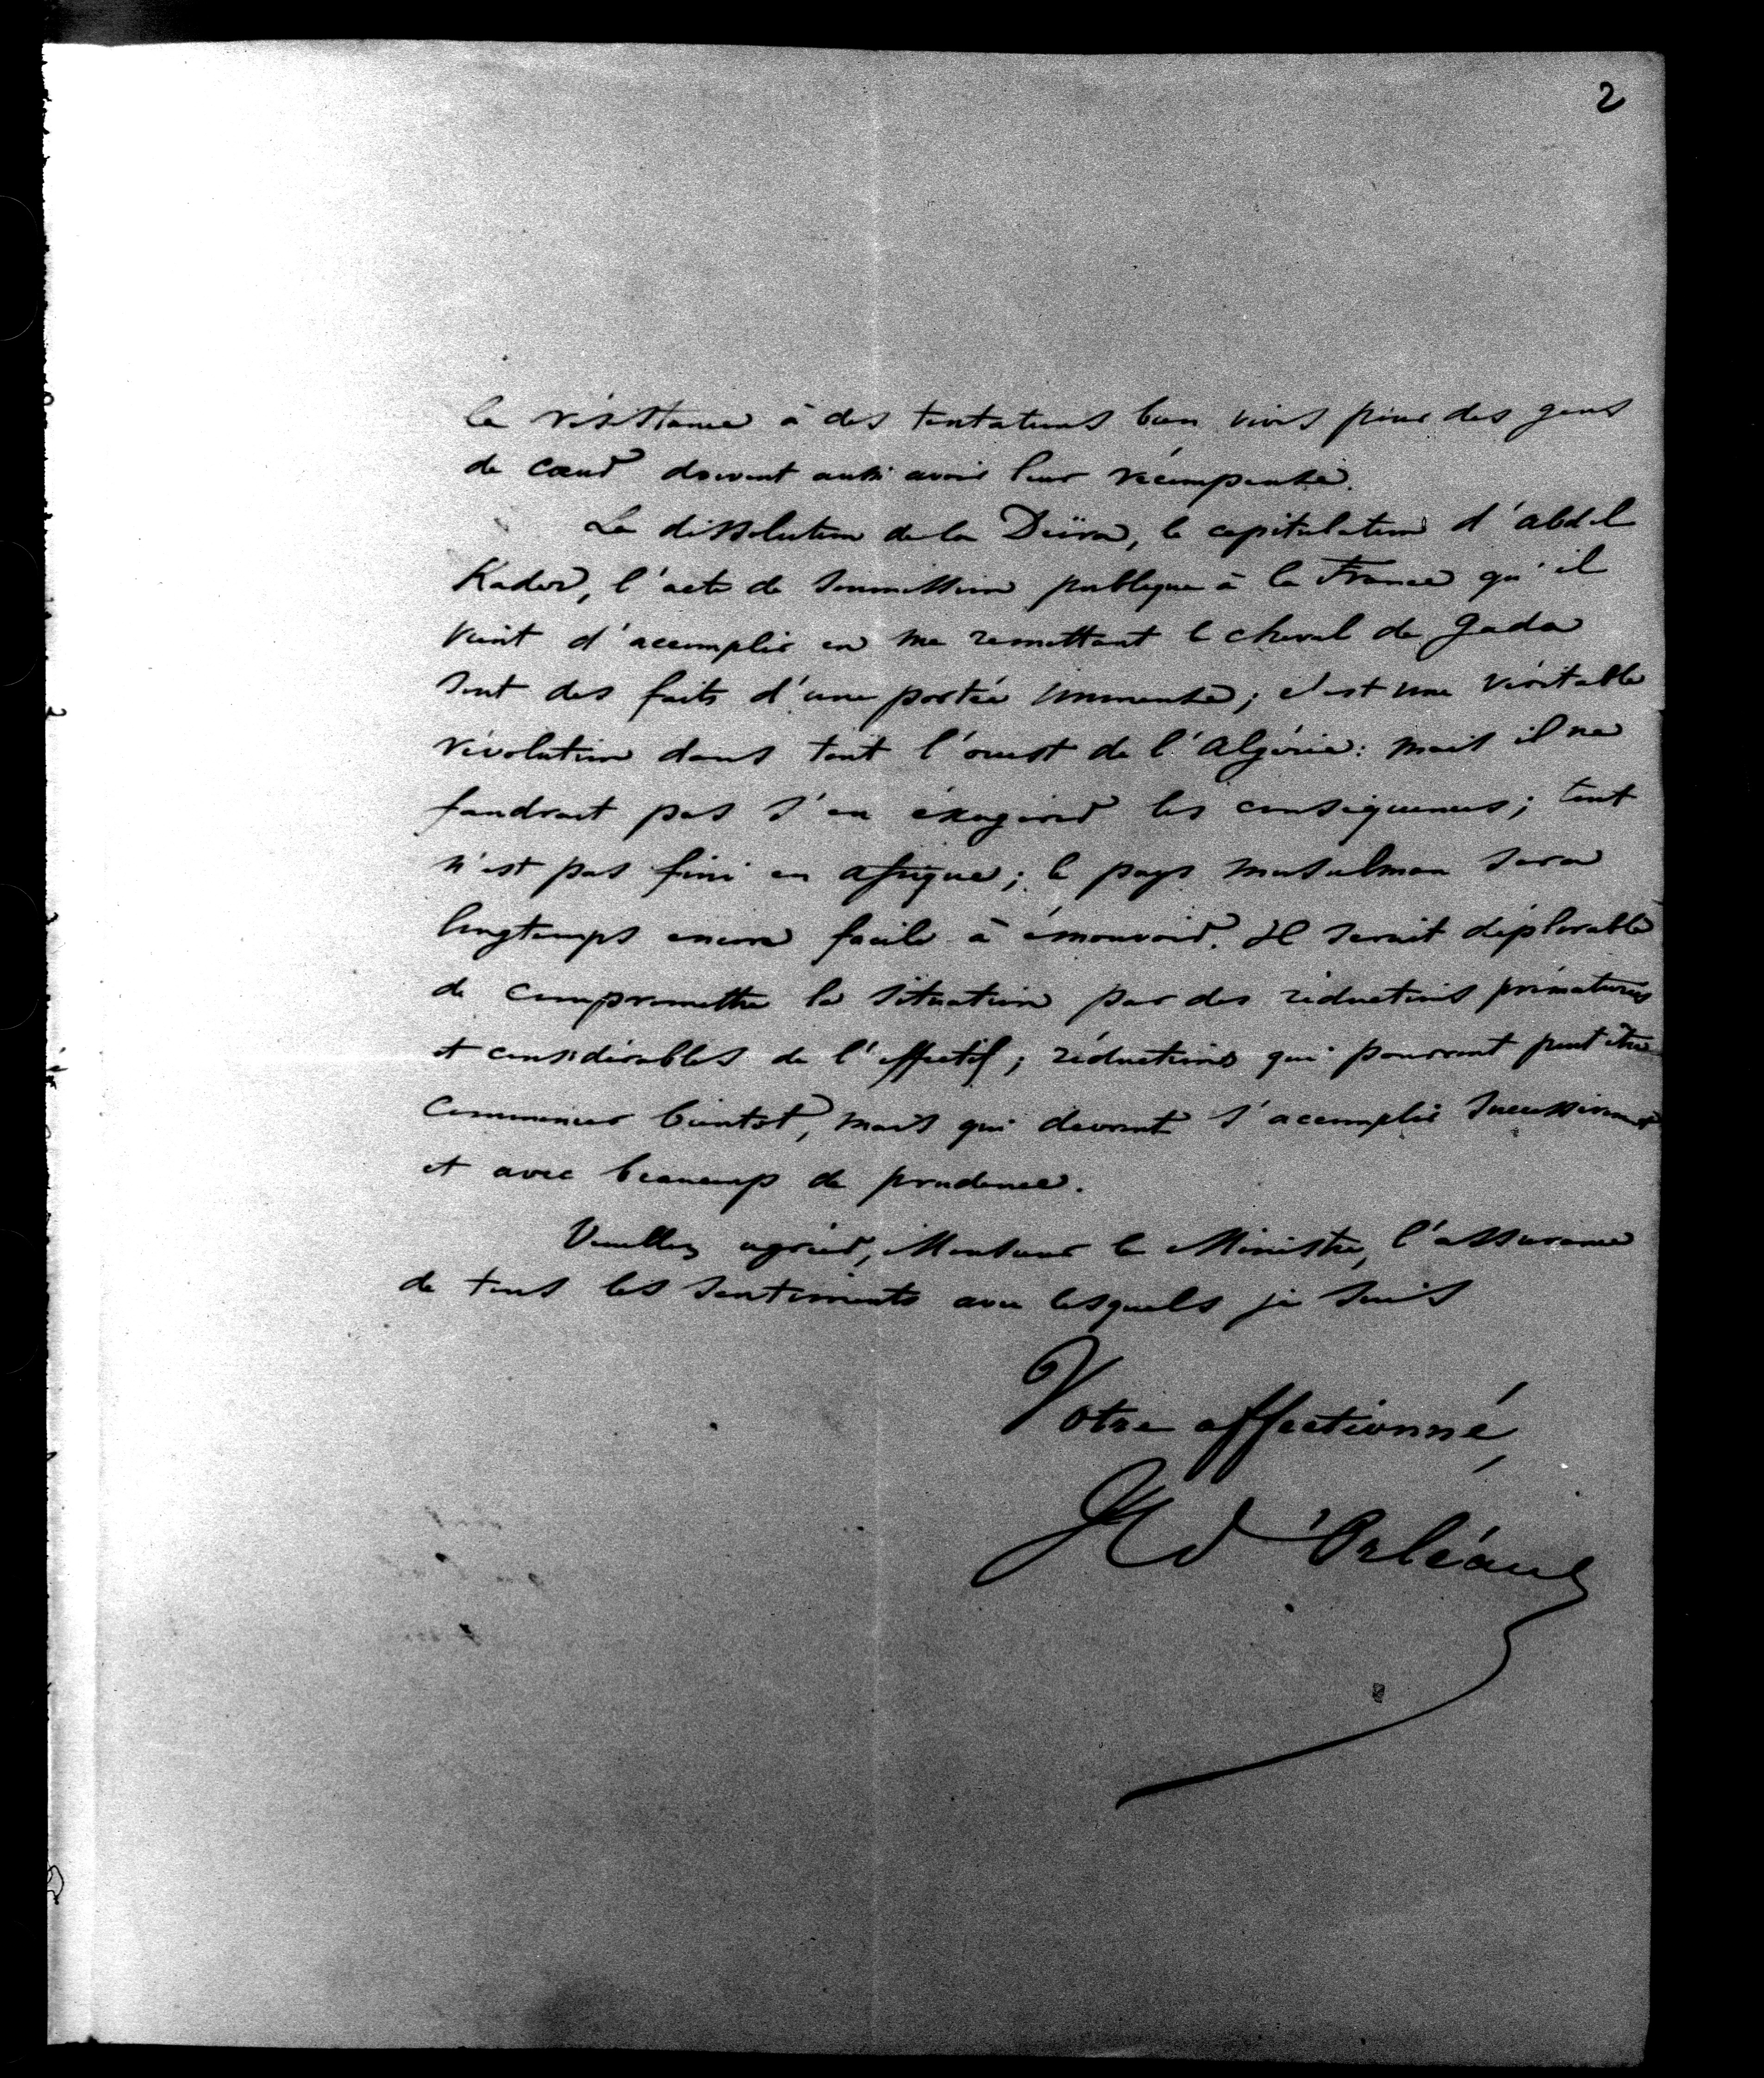 2
la résistance à des tentations bien vives pour des gens
de cœur doivent aussi avoir leur récompense.
La dissolution de la Deïra, la capitulation d'abd el
Kader, l'acte de soumission publique à la France qu'il
vient d'accomplir en me remettant le cheval de Gada
sont des faits d'une portée immense; c'est une véritable
révolution dans tout l'ouest de l'Algérie: mais il ne
faudrait pas s'en éxagérer les conséquences; tout
n'est pas fini en afrique; le pays musulman sera
longtemps encore facile à émouvoir. Il serait déplorable
de compromettre la situation par des réductions prématurées
et considérables de l'effectif; réductions qui pourront peut être
commencer bientot, mais qui devront s'accomplir successivement
et avec beaucoup de prudence.
Veuillez agréer, Monsieur le Ministre, l'assurance
de tous les sentiments avec lesquels je suis
Votre affectionné,
H d'Orléans